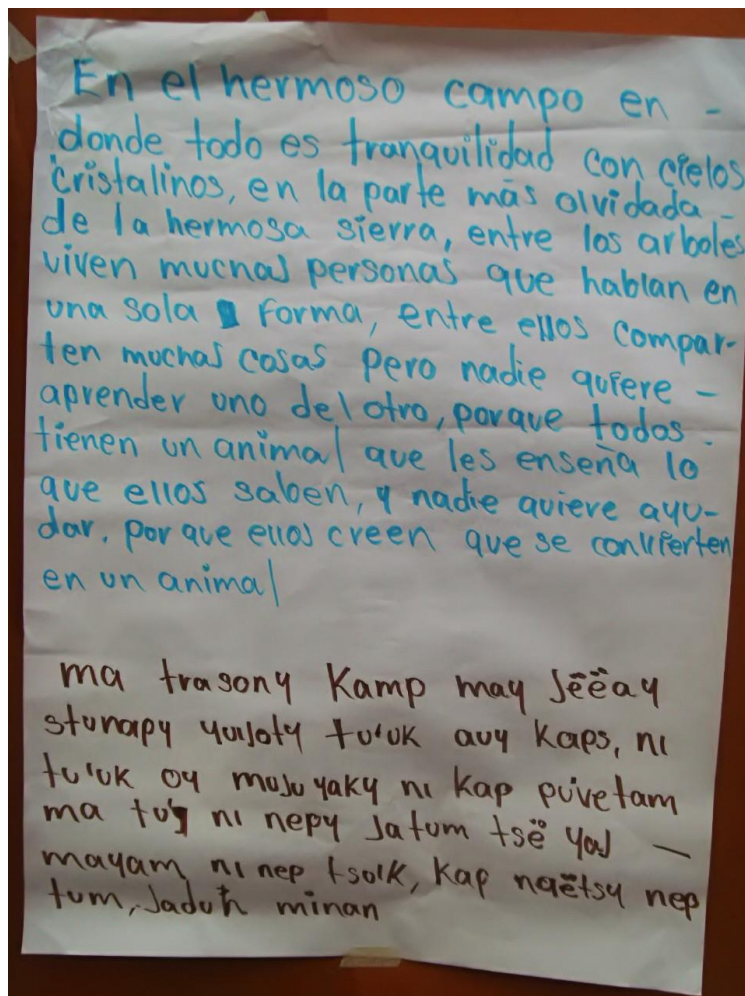 En el hermoso campo en -
donde todo es tranquilidad con cielos
cristalinos, en la parte más olvidada -
de la hermosa sierra, entre los arboles
viven muchas personas que hablan en
una sola forma, entre ellos compar-
ten muchas cosas pero nadie quiere -
aprender uno del otro, porque todos -
tienen un animal que les enseña lo
que ellos saben, y nadie quiere ayu-
dar, por que ellos creen que se convierten
en un animal
ma trasony Kamp may Jëëay
tu'uk auy kaps, ni
tu'uk oy ni kap
ma ni nepy Jatum tsë yaJ —
mayam ni nep tsoık, kap naëtsy nep
tum, minan